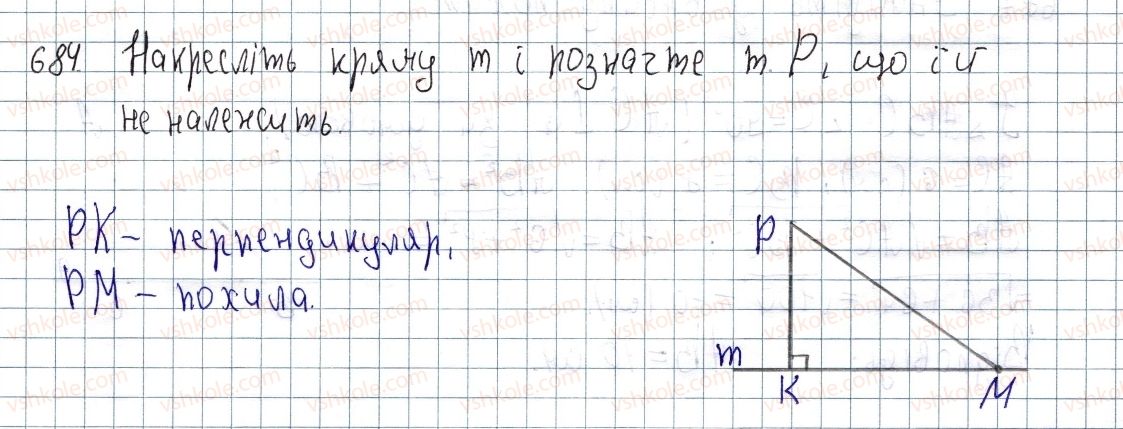 684. Накресліть пряму m і позначте т. P, що їй
не належить.
PK – перпендикуляр,
PM – похила.
P
m
K
M